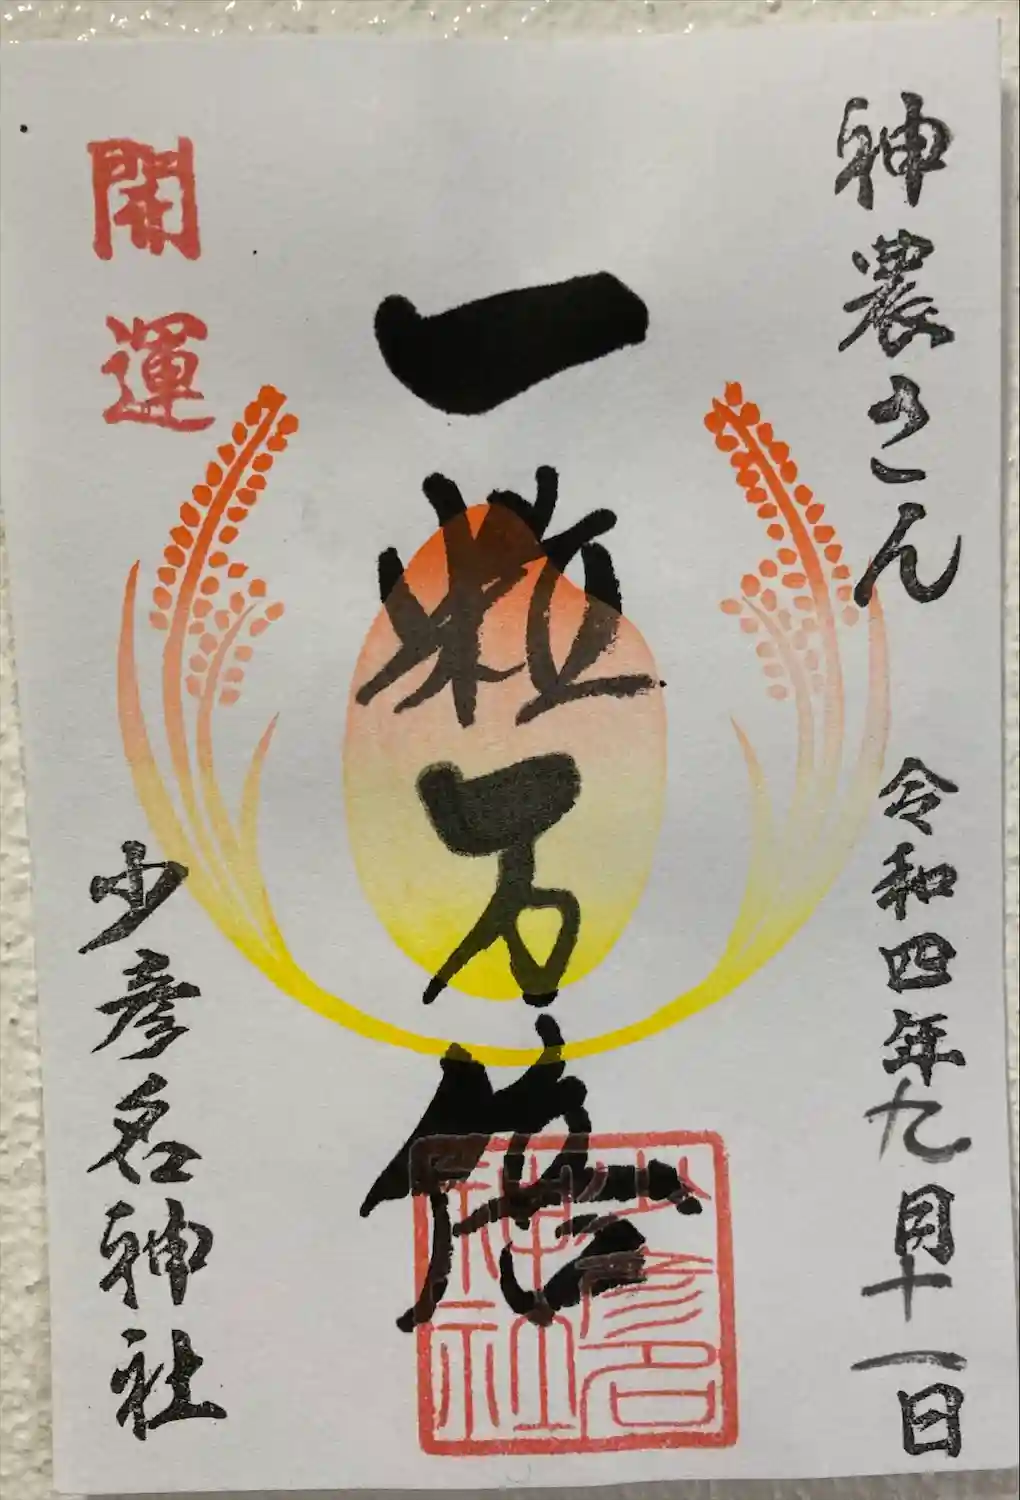 神農さん 令和四年九月十一日
一粒万倍
開運
少彦名神社
少彦名神社